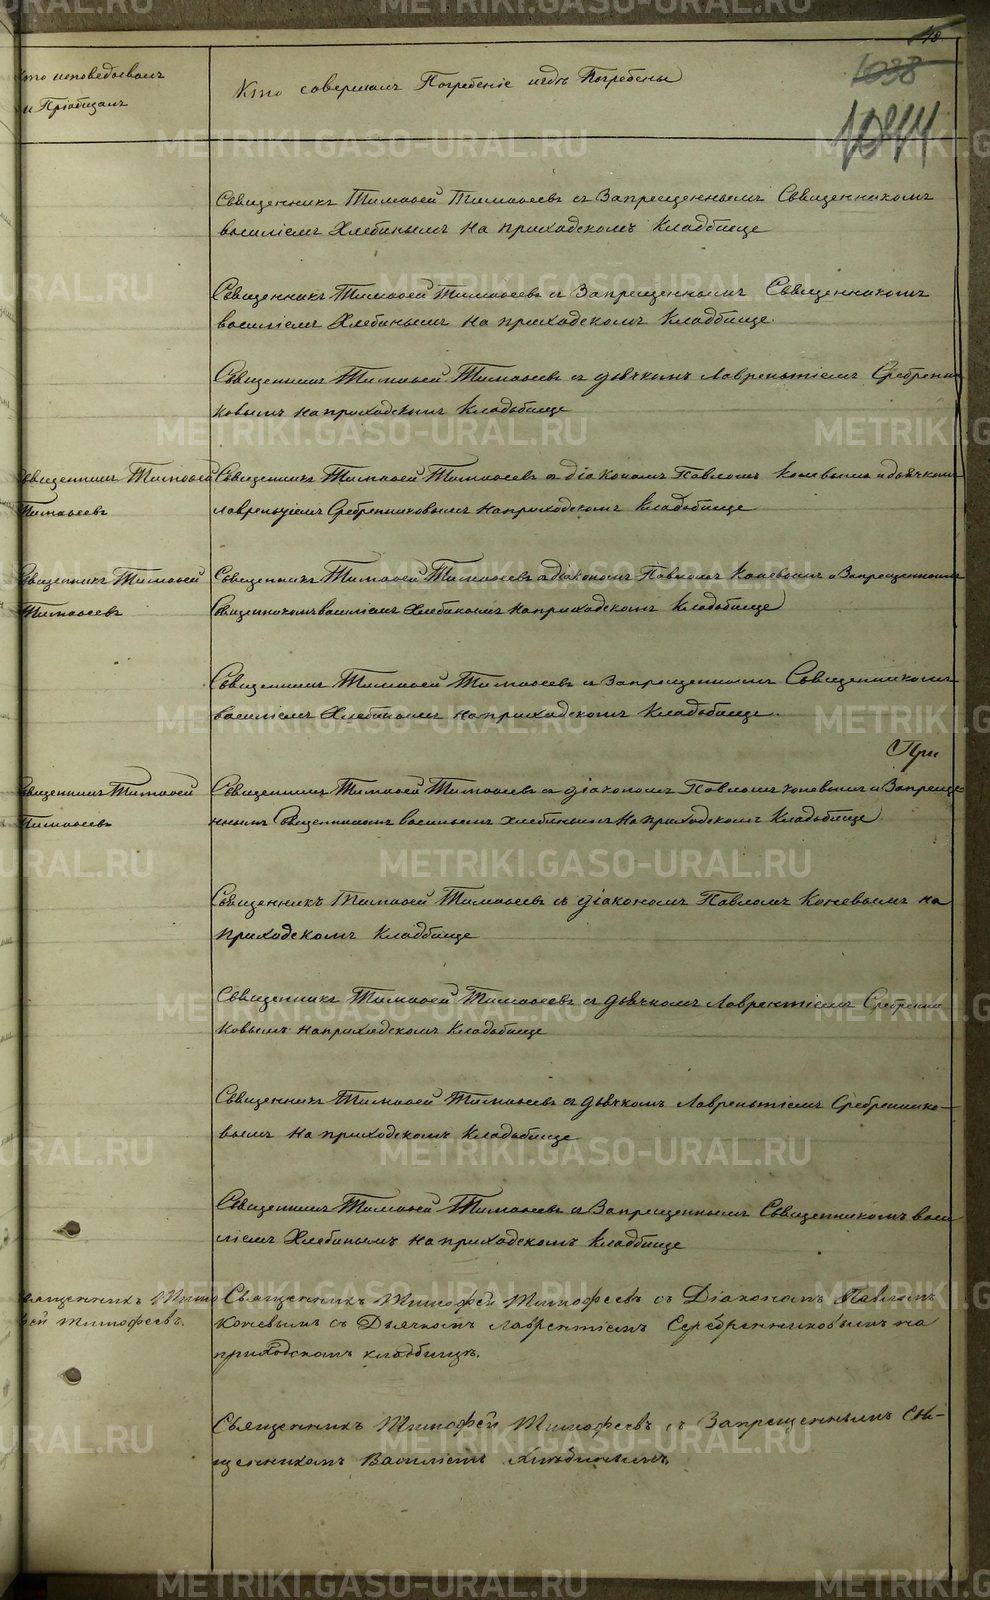 Кто исповедовалъ
и Пріобщалъ
Кто совершалъ Погребеніе и гдѣ Погребены
1038
1044
Священникъ Тимофей Тимофеевъ съ Запрещеннымъ Священникомъ
василіемъ Хлебинымъ на приходскомъ Кладбище
Священникъ Тимофей Тимофеевъ съ Запрещеннымъ Священникомъ
василіемъ Хлебинымъ на приходскомъ Кладбище.
Священникъ Тимофей Тимофеевъ съ дьячкомъ Лаврентіемъ Сребренни
ковымъ на приходскомъ Кладьбище
Священникъ Тимофей
Тимофеевъ
Священникъ Тимофей Тимофеевъ съ діакономъ Павломъ Коневымъ и дьячкомъ
лаврентіемъ Сребренниковымъ на приходскомъ Кладьбище
Священникъ Тимофей
Тимофеевъ
Священникъ Тимофей Тимофеевъ съ діакономъ Павломъ Коневымъ и Запрещеннымъ
Священникомъ василіемъ Хлебинымъ на приходскомъ Кладьбище
Священникъ Тимофей Тимофеевъ съ Запрещеннымъ Священникомъ
василіемъ Хлебинымъ на приходскомъ Кладьбище.
При
Священникъ Тимофей
Тимофеевъ
Священникъ Тимофей Тимофеевъ съ діакономъ Павломъ Коневымъ и Запреще
ннымъ Священникомъ васильемъ хлебинымъ на приходскомъ Кладьбище
Священникъ Тимофей Тимофеевъ съ діакономъ Павломъ Коневымъ на
приходскомъ Кладбище
Священникъ Тимофей Тимофеевъ съ дьячкомъ Лаврентіемъ Сребренни
ковымъ на приходскомъ Кладьбище
Священникъ Тимофей Тимофеевъ съ дьячкомъ Лаврентіемъ Сребреннико-
вымъ на приходскомъ Кладьбище
Священникъ Тимофей Тимофеевъ съ Запрещеннымъ Священникомъ васи
ліемъ Хлебинымъ на приходскомъ Кладбище
Священникъ Тимо
фей Тимофеевъ.
Священникъ Тимофей Тимофеевъ съ Діакономъ Павломъ
Коневымъ съ Дьячкомъ Лаврентіемъ Серебренниковымъ на
приходскомъ кладбищѣ.
Священникъ Тимофей Тимофеевъ съ Запрещеннымъ Свя-
щенникомъ Василіемъ Хлѣбинымъ.
METRIKI.GASO-URAL.RU